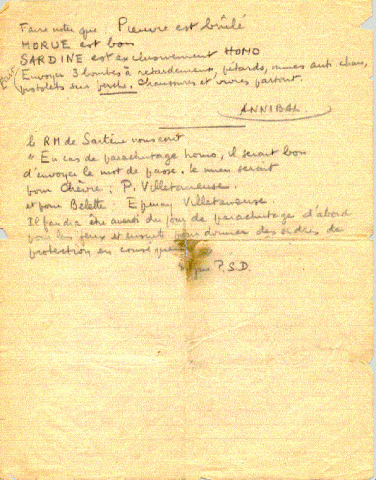 Faire noter que Pieuvre est brûlé
MORUE est bon
SARDINE est exclusivement HOMO
Envoyez 3 bombes à retardement, pétards, mines anti chars,
pistolets sur perche. Chaussures et vivres partout.
ANNIBAL
le RM de Sartène vous écrit
" En cas de parachutage homo, il serait bon
d'envoyer le mot de passe. le mien serait
pour Chèvre : P. Villetaneuse.
et pour Belette : Epinay Villetaneuse.
Il faudra être averti du jour de parachutage d'abord
pour les feux et ensuite pour donner des ordres de
protection en conséquence
par P.S.D.